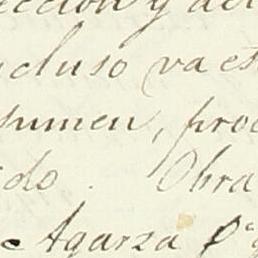 ección y del
cluso va es
sumen, proc
do. Obra
Agarza